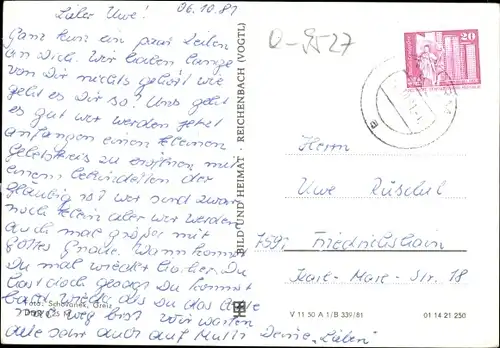 06.10.81
Lieber Uwe!
Ganz kurz ein paar Zeilen
an Dich. Wir haben lange
von Dir nichts gehört wie
geht es Dir so? Uns geht
es gut wir werden jetzt
anfangen einen kleinen
Gebetskreis zu eröffnen mit
einem behinderten der
gläubig ist wir sind zwar
noch klein aber wir werden
auch mal größer mit
Gottes Gnade. Wann kommst
Du mal wieder hierher. Du
hast doch gesagt Du kommst
wieder das Du das
weg bist Wir warten
sehr auch auf Mutti Deine „Lieben"
Foto: Schovanek, Greiz
BILD UND HEIMAT · REICHENBACH (VOGTL)
D-9527
20
Herrn
Uwe Rüschel
7591 Friedrichshain
Karl-Marx-Str. 18
V 11 50 A 1/B 339/81 01 14 21 250